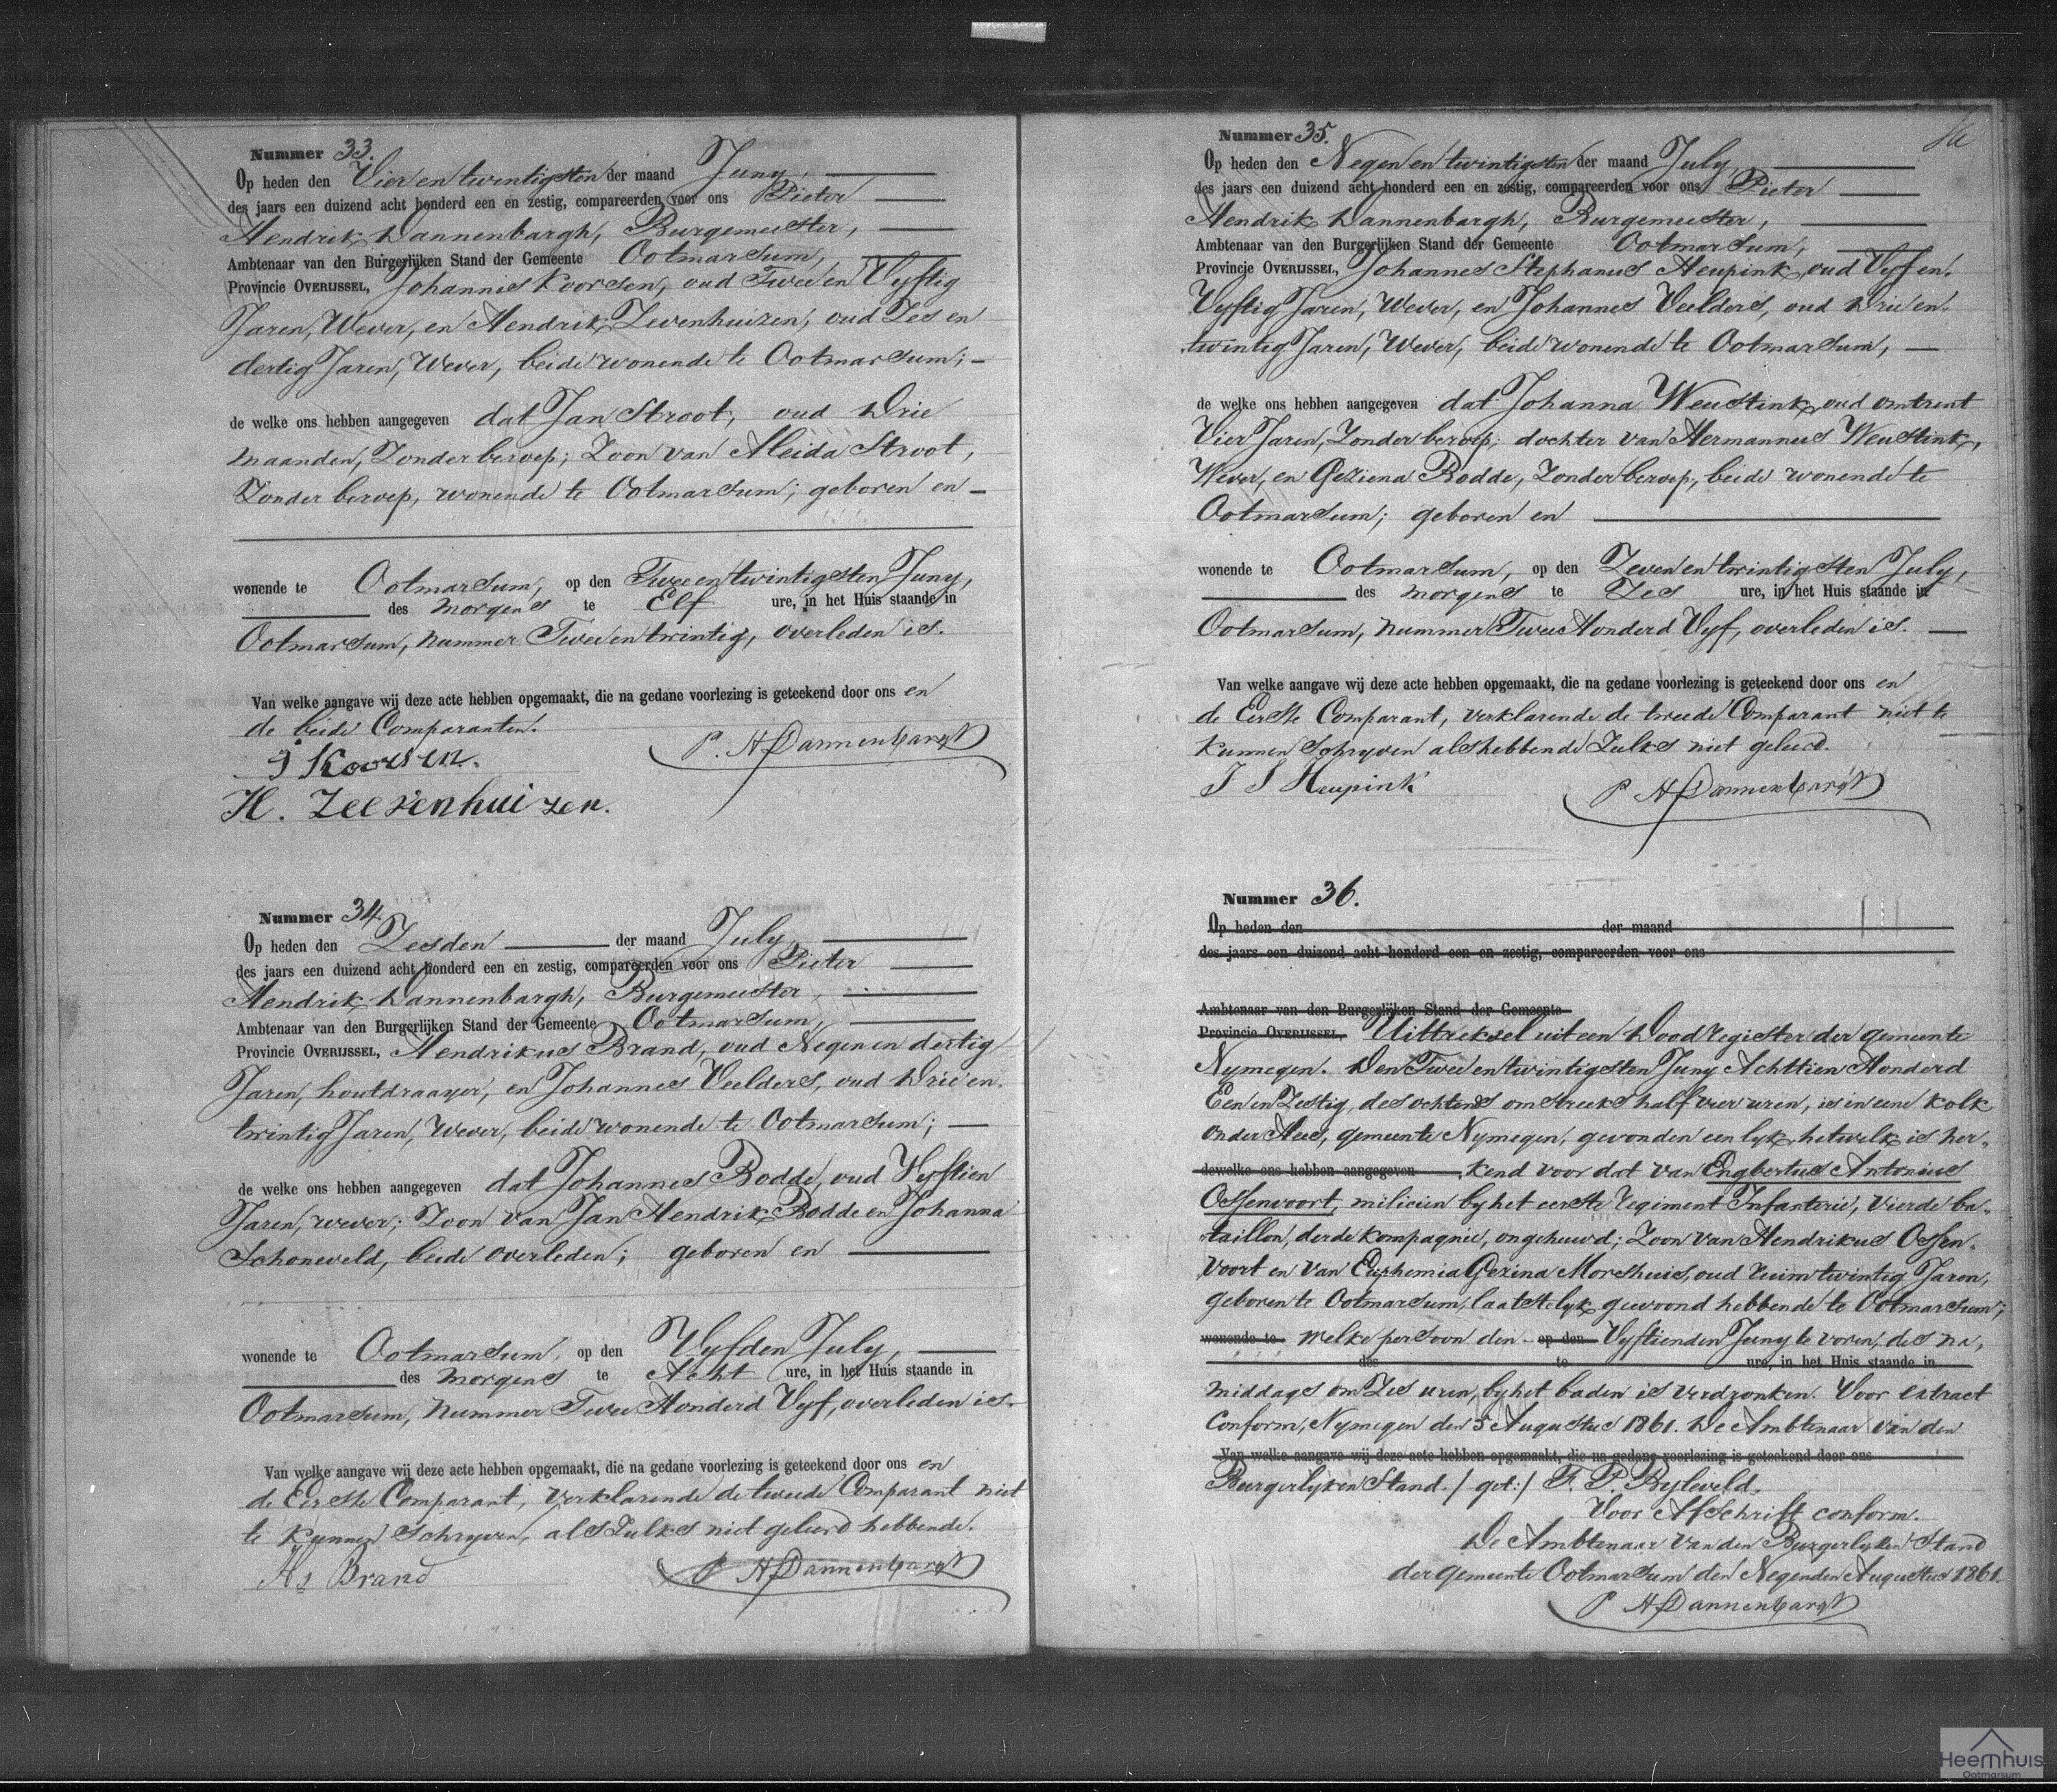 Nummer 33.
Op heden den Vier en twintigsten der maand Juny,
des jaars een duizend acht honderd een en zestig, compareerden voor ons Pieter
Hendrik Dannenbargh, Burgemeester,
Ambtenaar van den Burgerlijken Stand der Gemeente Ootmarsum,
Provincie OVERIJSSEL, Johannes Koorsen, oud Twee en Vyftig
Jaren, Wever, en Hendrik Zevenhuizen, oud Zes en
dertig Jaren, Wever, beide wonende te Ootmarsum;
de welke ons hebben aangegeven dat Jan Stroot, oud Drie
maanden, Zonder beroep; Zoon van Aleida Stroot,
Zonder beroep, wonende te Ootmarsum; geboren en
wonende te Ootmarsum, op den Twee en twintigsten Juny,
des morgens te Elf ure, in het Huis staande in
Ootmarsum, nummer Twee en twintig, overleden is.
Van welke aangave wij deze acte hebben opgemaakt, die na gedane voorlezing is geteekend door ons en
de beide Comparanten.
J Koorsen. P. H Dannenbargh
H. Zeevenhuizen.
Nummer 34.
Op heden den Zesden der maand July,
des jaars een duizend acht honderd een en zestig, compareerden voor ons Pieter
Hendrik Dannenbargh, Burgemeester,
Ambtenaar van den Burgerlijken Stand der Gemeente Ootmarsum,
Provincie OVERIJSSEL, Hendrikus Brand, oud Negen en dertig
Jaren, houtdraayer, en Johannes Veelders, oud Drie en
twintig Jaren, Wever, beide wonende te Ootmarsum;
de welke ons hebben aangegeven dat Johannes Bodde, oud Vyftien
Jaren, wever; Zoon van Jan Hendrik Bodde en Johanna
Schoneveld, beide overleden; geboren en
wonende te Ootmarsum, op den Vyfden July,
des morgens te Acht ure, in het Huis staande in
Ootmarsum, nummer Twee Honderd Vyf, overleden is.
Van welke aangave wij deze acte hebben opgemaakt, die na gedane voorlezing is geteekend door ons en
de Eerste Comparant, verklarende de tweede Comparant niet
te kunnen schryven, als Zulks niet geleerd hebbende.
Hs Brand P H Dannenbargh
Nummer 35.
Op heden den Negen en twintigsten der maand July,
des jaars een duizend acht honderd een en zestig, compareerden voor ons Pieter
Hendrik Dannenbargh, Burgemeester,
Ambtenaar van den Burgerlijken Stand der Gemeente Ootmarsum,
Provincie OVERIJSSEL, Johannes Stephanus Heupink, oud Vyf en
Vyftig Jaren, Wever, en Johannes Veelders, oud Drie en
twintig Jaren, Wever, beide wonende te Ootmarsum,
de welke ons hebben aangegeven dat Johanna Weustink, oud omtrent
Vier Jaren, Zonder beroep; dochter van Hermannus Weustink,
Wever, en Geziena Bodde, Zonder beroep, beide wonende te
Ootmarsum; geboren en
wonende te Ootmarsum, op den Zeven en twintigsten July,
des morgens te Zes ure, in het Huis staande in
Ootmarsum, nummer Twee Honderd Vyf, overleden is.
Van welke aangave wij deze acte hebben opgemaakt, die na gedane voorlezing is geteekend door ons en
de Eerste Comparant, verklarende de tweede Comparant niet te
kunnen Schryven als hebbende Zulks niet geleerd.
J S Heupink P H Dannenbargh
Nummer 36.
Op heden den der maand
des jaars een duizend acht honderd een en zestig, compareerden voor ons
Ambtenaar van den Burgerlijken Stand der Gemeente
Provincie OVERIJSSEL, Uittreksel uit een Doodregister der gemeente
Nymegen. Den Twee en twintigsten Juny Achttien Honderd
Een en Zestig, des ochtens omstreeks half vier uren, is in eene kolk
onder Hees, gemeente Nymegen, gevonden een lyk, hetwelk is her-
dewelke ons hebben aangegeven kend voor dat van Engbertus Antonius
Ossenvoort, milicien by het eerste regiment Infanterie, vierde ba-
taillon, derde kompagnie, ongehuwd; Zoon van Hendrikus Ossen-
voort en van Euphemia Gezina Morshuis, oud ruim twintig Jaren,
geboren te Ootmarsum, laatstelyk gewoond hebbende te Ootmarsum;
wonende te welke persoon den op den Vyftienden Juny te voren, des na,
des te ure, in het Huis staande in
middags om Zes uren, by het baden is verdronken. Voor extract
Conform, Nymegen den 5 Augustus 1861. De Ambtenaar van den
Van welke aangave wij deze acte hebben opgemaakt, die na gedane voorlezing is geteekend door ons
Burgerlyken Stand. / get:/ F. P. Byleveld.
Voor Afschrift conform.
De Ambtenaar van den Burgerlyken Stand
der gemeente Ootmarsum den Negenden Augustus 1861.
P H Dannenbargh
Heemhuis
Ootmarsum